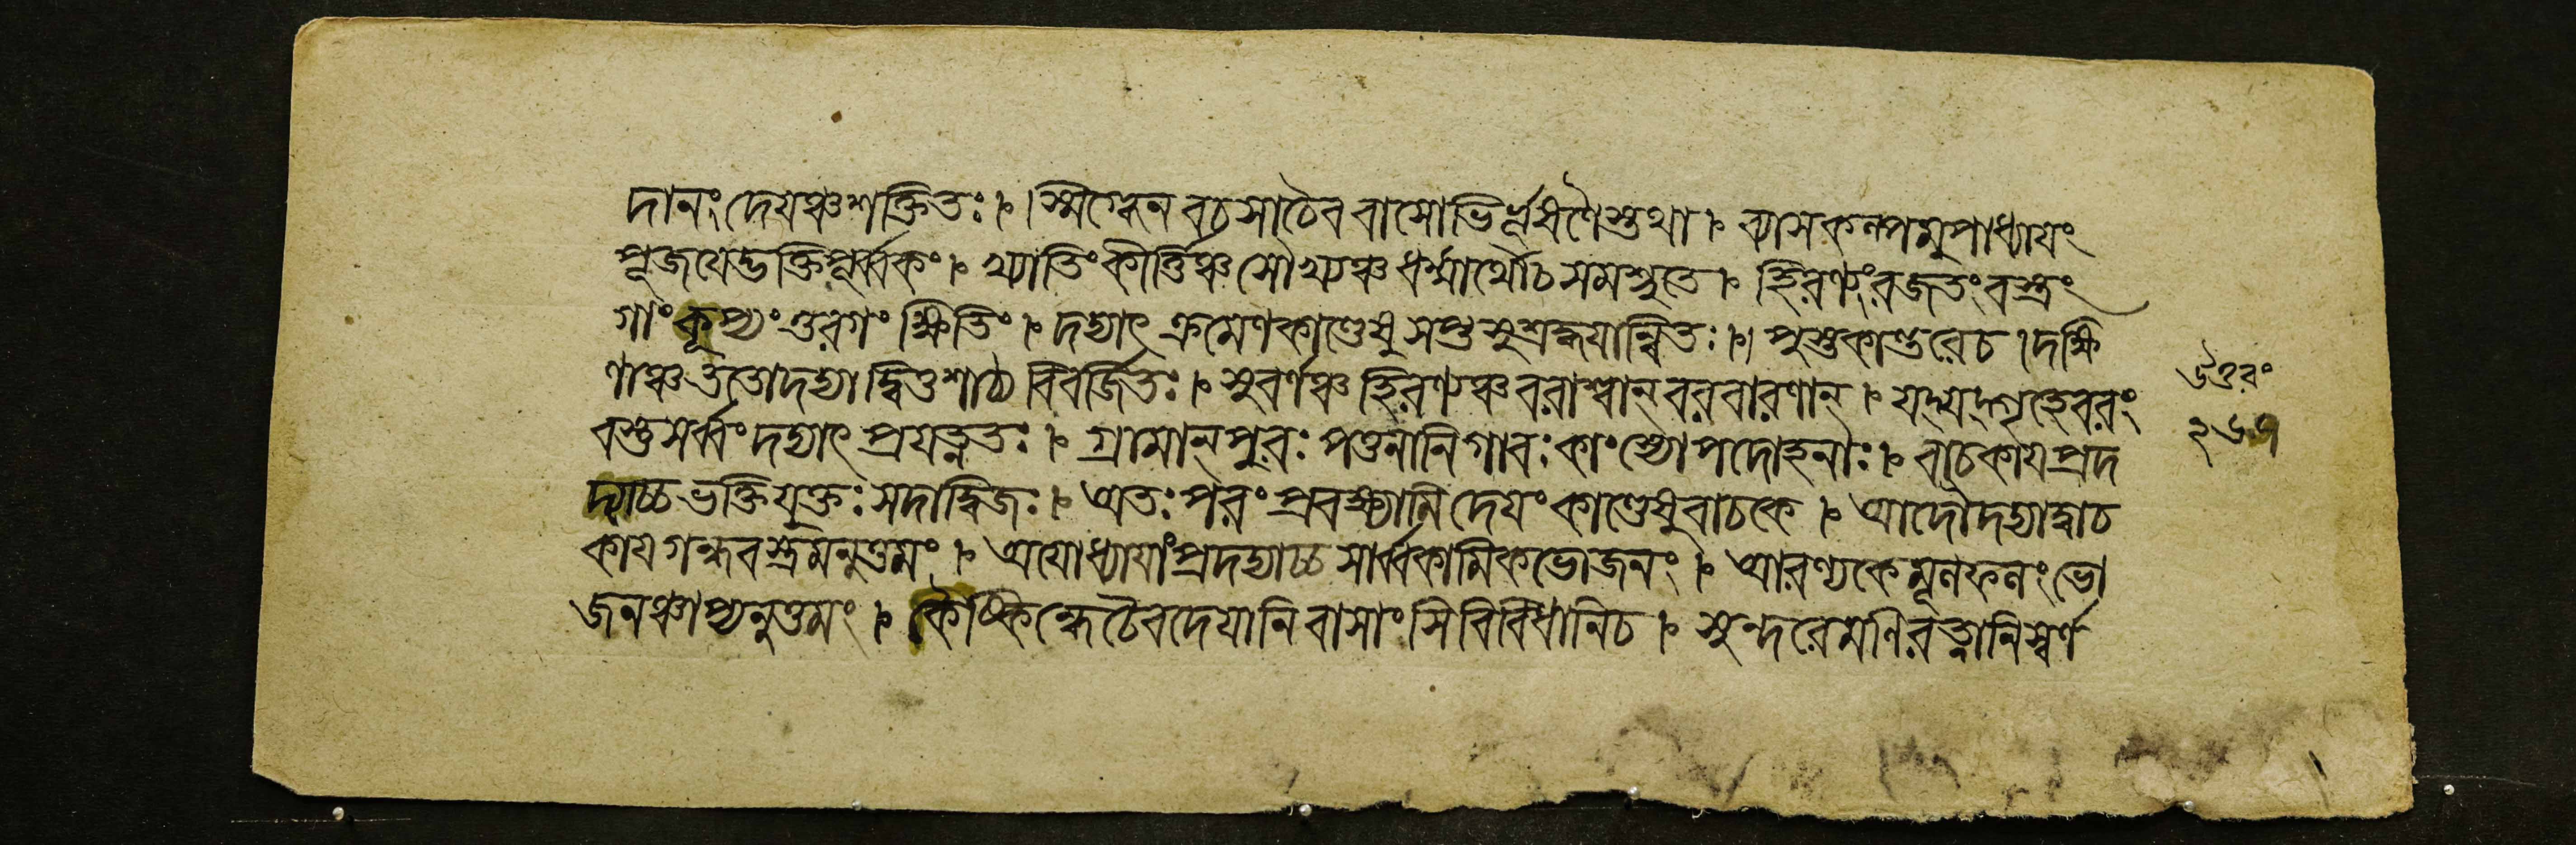 দানং দেয়ঞ্চ শক্তিতঃ ৷৷ স্নিগ্ধেন বচসা চৈব বাসোভির্ভূষণৈস্তথা ৷ ব্যাসকল্পমুপাধ্যায়ং
পূজয়েদ্ভক্তিপূর্ব্বকং ৷ খ্যাতিং কীর্ত্তিঞ্চ সৌখ্যঞ্চ ধর্ম্মার্থৌ চ সমশ্নুতে ৷ হিরণ্যং রজতং বস্ত্রং
গাং কূপ্যং তুরগং ক্ষিতিং ৷ দদ্যাৎ ক্রমেণ কাণ্ডেষু সপ্তসু শ্রদ্ধয়ান্বিতঃ ৷৷ পুস্তকান্তরে চ ৷ দক্ষি
ণাঞ্চ ততো দদ্যাদ্বিত্তশাঠ্য বিবর্জিতঃ ৷ সুবর্ণঞ্চ হিরণ্যঞ্চ বরাশ্বান্ বরবারণান্ ৷ যদ্যদ্গৃহে বরং
বস্তু সর্ব্বং দদ্যাৎ প্রযত্নতঃ ৷ গ্রামান্ পুরঃ পত্তনানি গাবঃ কাংস্যোপদোহনীঃ ৷ বাচকায় প্রদ
দ্যাচ্চ ভক্তিযুক্তঃ সদা দ্বিজঃ ৷ অতঃপরং প্রবক্ষ্যামি দেয়ং কাণ্ডেষু বাচকে ৷ আদৌ দদ্যাদ্বাচ
কায় গন্ধবস্ত্রমনুত্তমং ৷ অযোধ্যায়াং প্রদদ্যাচ্চ সার্ব্বকামিকভোজনং ৷ আরণ্যকে মূলফলং ভো
জনঞ্চাপ্যনুত্তমং ৷ কৈষ্কিন্ধে চৈব দেয়ানি বাসাংসি বিবিধানি চ ৷ সুন্দরে মণিরত্নানি স্বর্ণ
উত্তরং
২৬৭